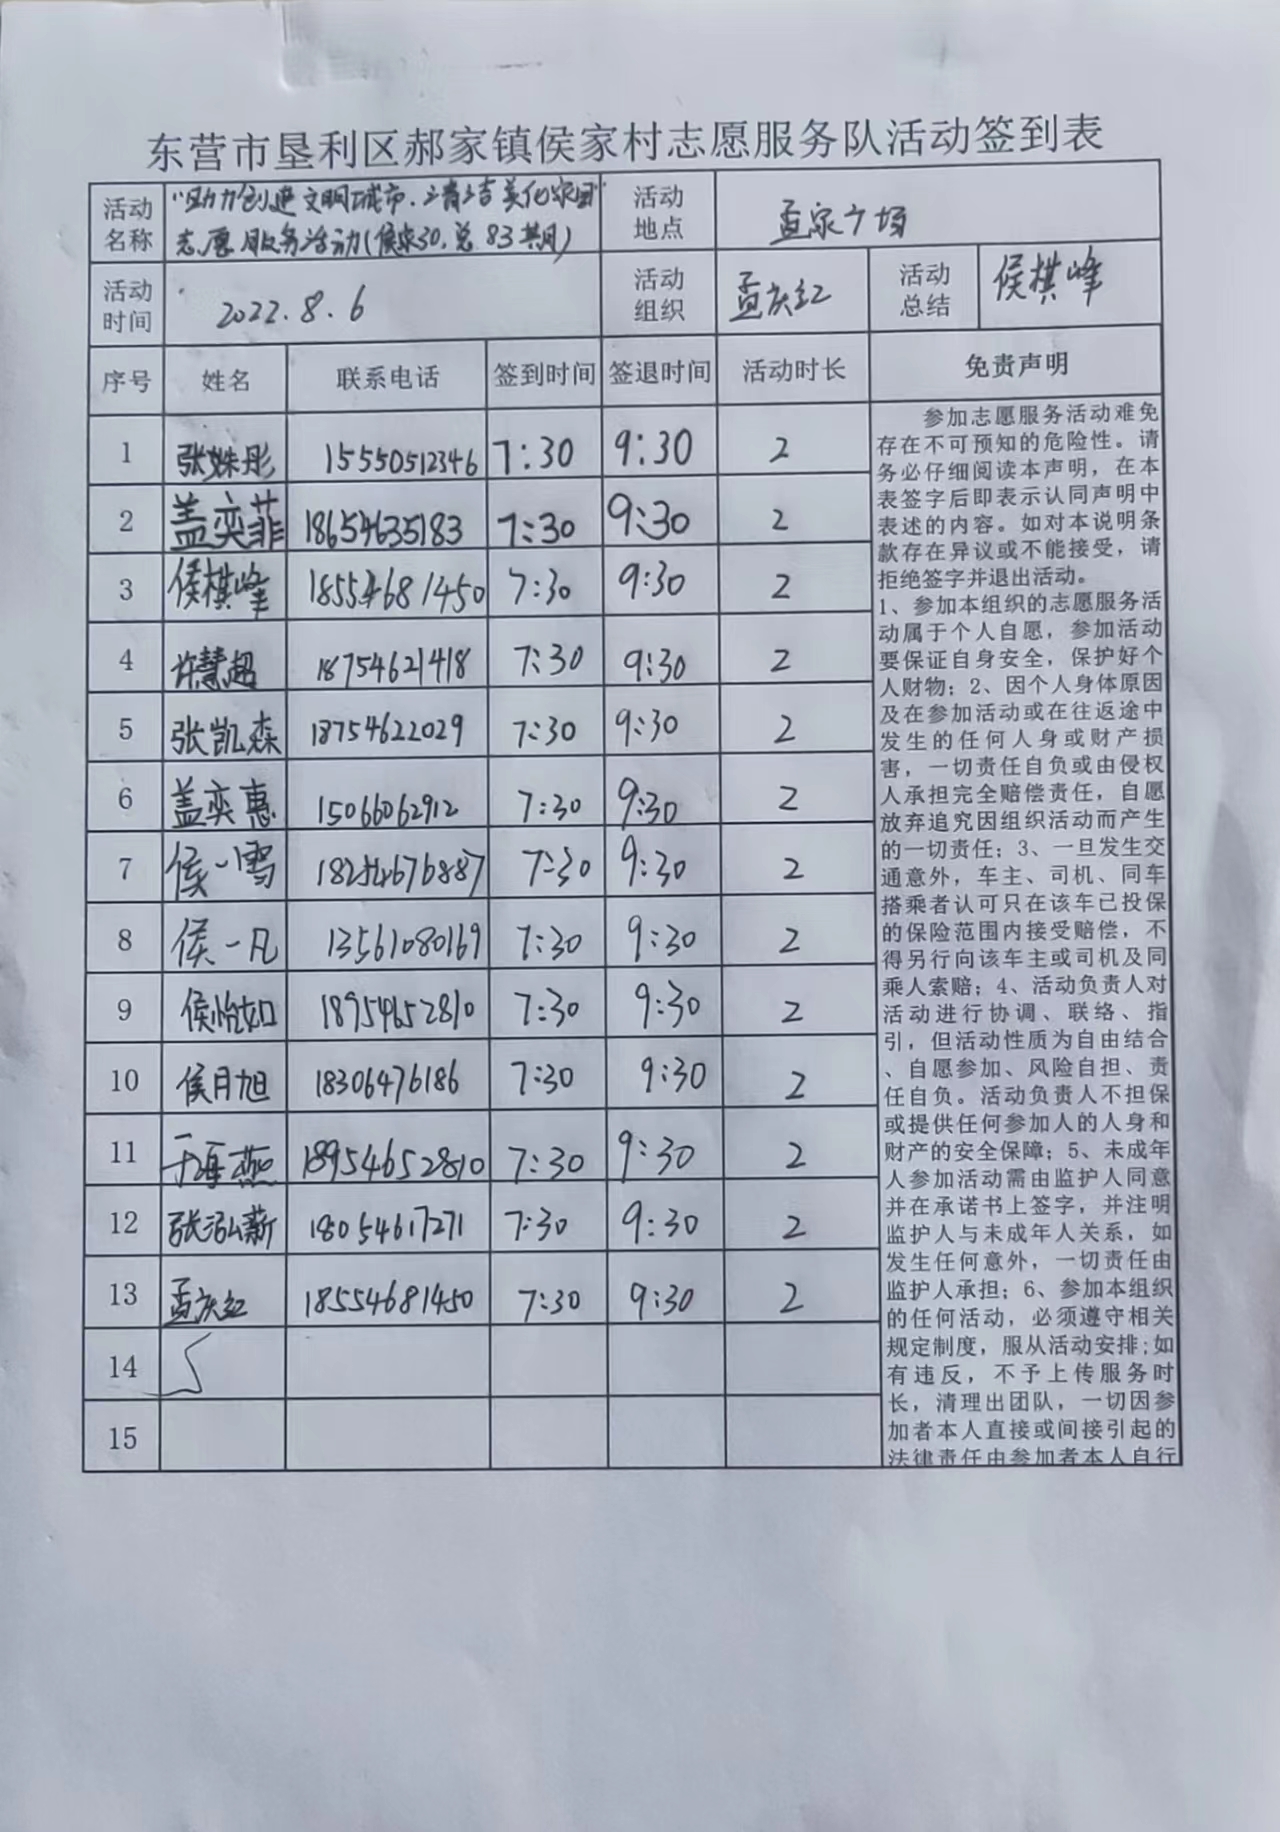 东营市垦利区郝家镇侯家村志愿服务队活动签到表
活动名称
"助力创建文明城市,清洁美化家园"
志愿服务活动(侯家30,总83期)
活动地点
孟家广场
活动时间
2022.8.6
活动组织
孟庆红
活动总结
侯棋峰
序号 姓名 联系电话 签到时间 签退时间 活动时长 免责声明
1 张姝彤 15550512346 7:30 9:30 2
2 盖奕菲 18654635183 7:30 9:30 2
3 侯棋峰 18554681450 7:30 9:30 2
4 许慧超 18754621418 7:30 9:30 2
5 张凯森 18754622029 7:30 9:30 2
6 盖奕惠 15066062912 7:30 9:30 2
7 侯一雪 18254676887 7:30 9:30 2
8 侯一凡 13561080169 7:30 9:30 2
9 侯怡如 18954652810 7:30 9:30 2
10 侯月旭 18306476186 7:30 9:30 2
11 于海燕 18954652810 7:30 9:30 2
12 张泓薪 18054617271 7:30 9:30 2
13 孟庆红 18554681450 7:30 9:30 2
14
15
参加志愿服务活动难免
存在不可预知的危险性。请
务必仔细阅读本声明,在本
表签字后即表示认同声明中
表述的内容。如对本说明条
款存在异议或不能接受,请
拒绝签字并退出活动。
1、参加本组织的志愿服务活
动属于个人自愿,参加活动
要保证自身安全,保护好个
人财物;2、因个人身体原因
及在参加活动或在往返途中
发生的任何人身或财产损
害,一切责任自负或由侵权
人承担完全赔偿责任,自愿
放弃追究因组织活动而产生
的一切责任;3、一旦发生交
通意外,车主、司机、同车
搭乘者认可只在该车已投保
的保险范围内接受赔偿,不
得另行向该车主或司机及同
乘人索赔;4、活动负责人对
活动进行协调、联络、指
引,但活动性质为自由结合
、自愿参加、风险自担、责
任自负。活动负责人不担保
或提供任何参加人的人身和
财产的安全保障;5、未成年
人参加活动需由监护人同意
并在承诺书上签字,并注明
监护人与未成年人关系,如
发生任何意外,一切责任由
监护人承担;6、参加本组织
的任何活动,必须遵守相关
规定制度,服从活动安排;如
有违反,不予上传服务时
长,清理出团队,一切因参
加者本人直接或间接引起的
法律责任由参加者本人自行